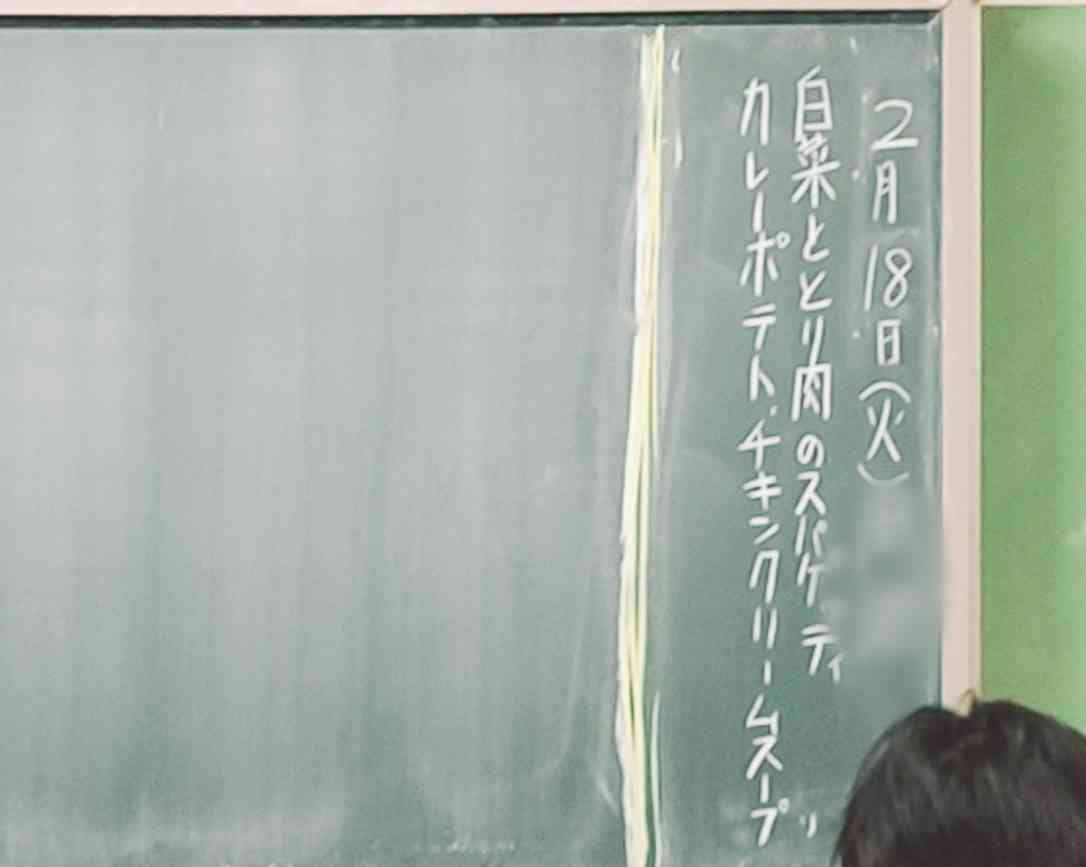 2月18日(火)
白菜ととり肉のスパゲティ
カレーポテト・チキンクリームスープ